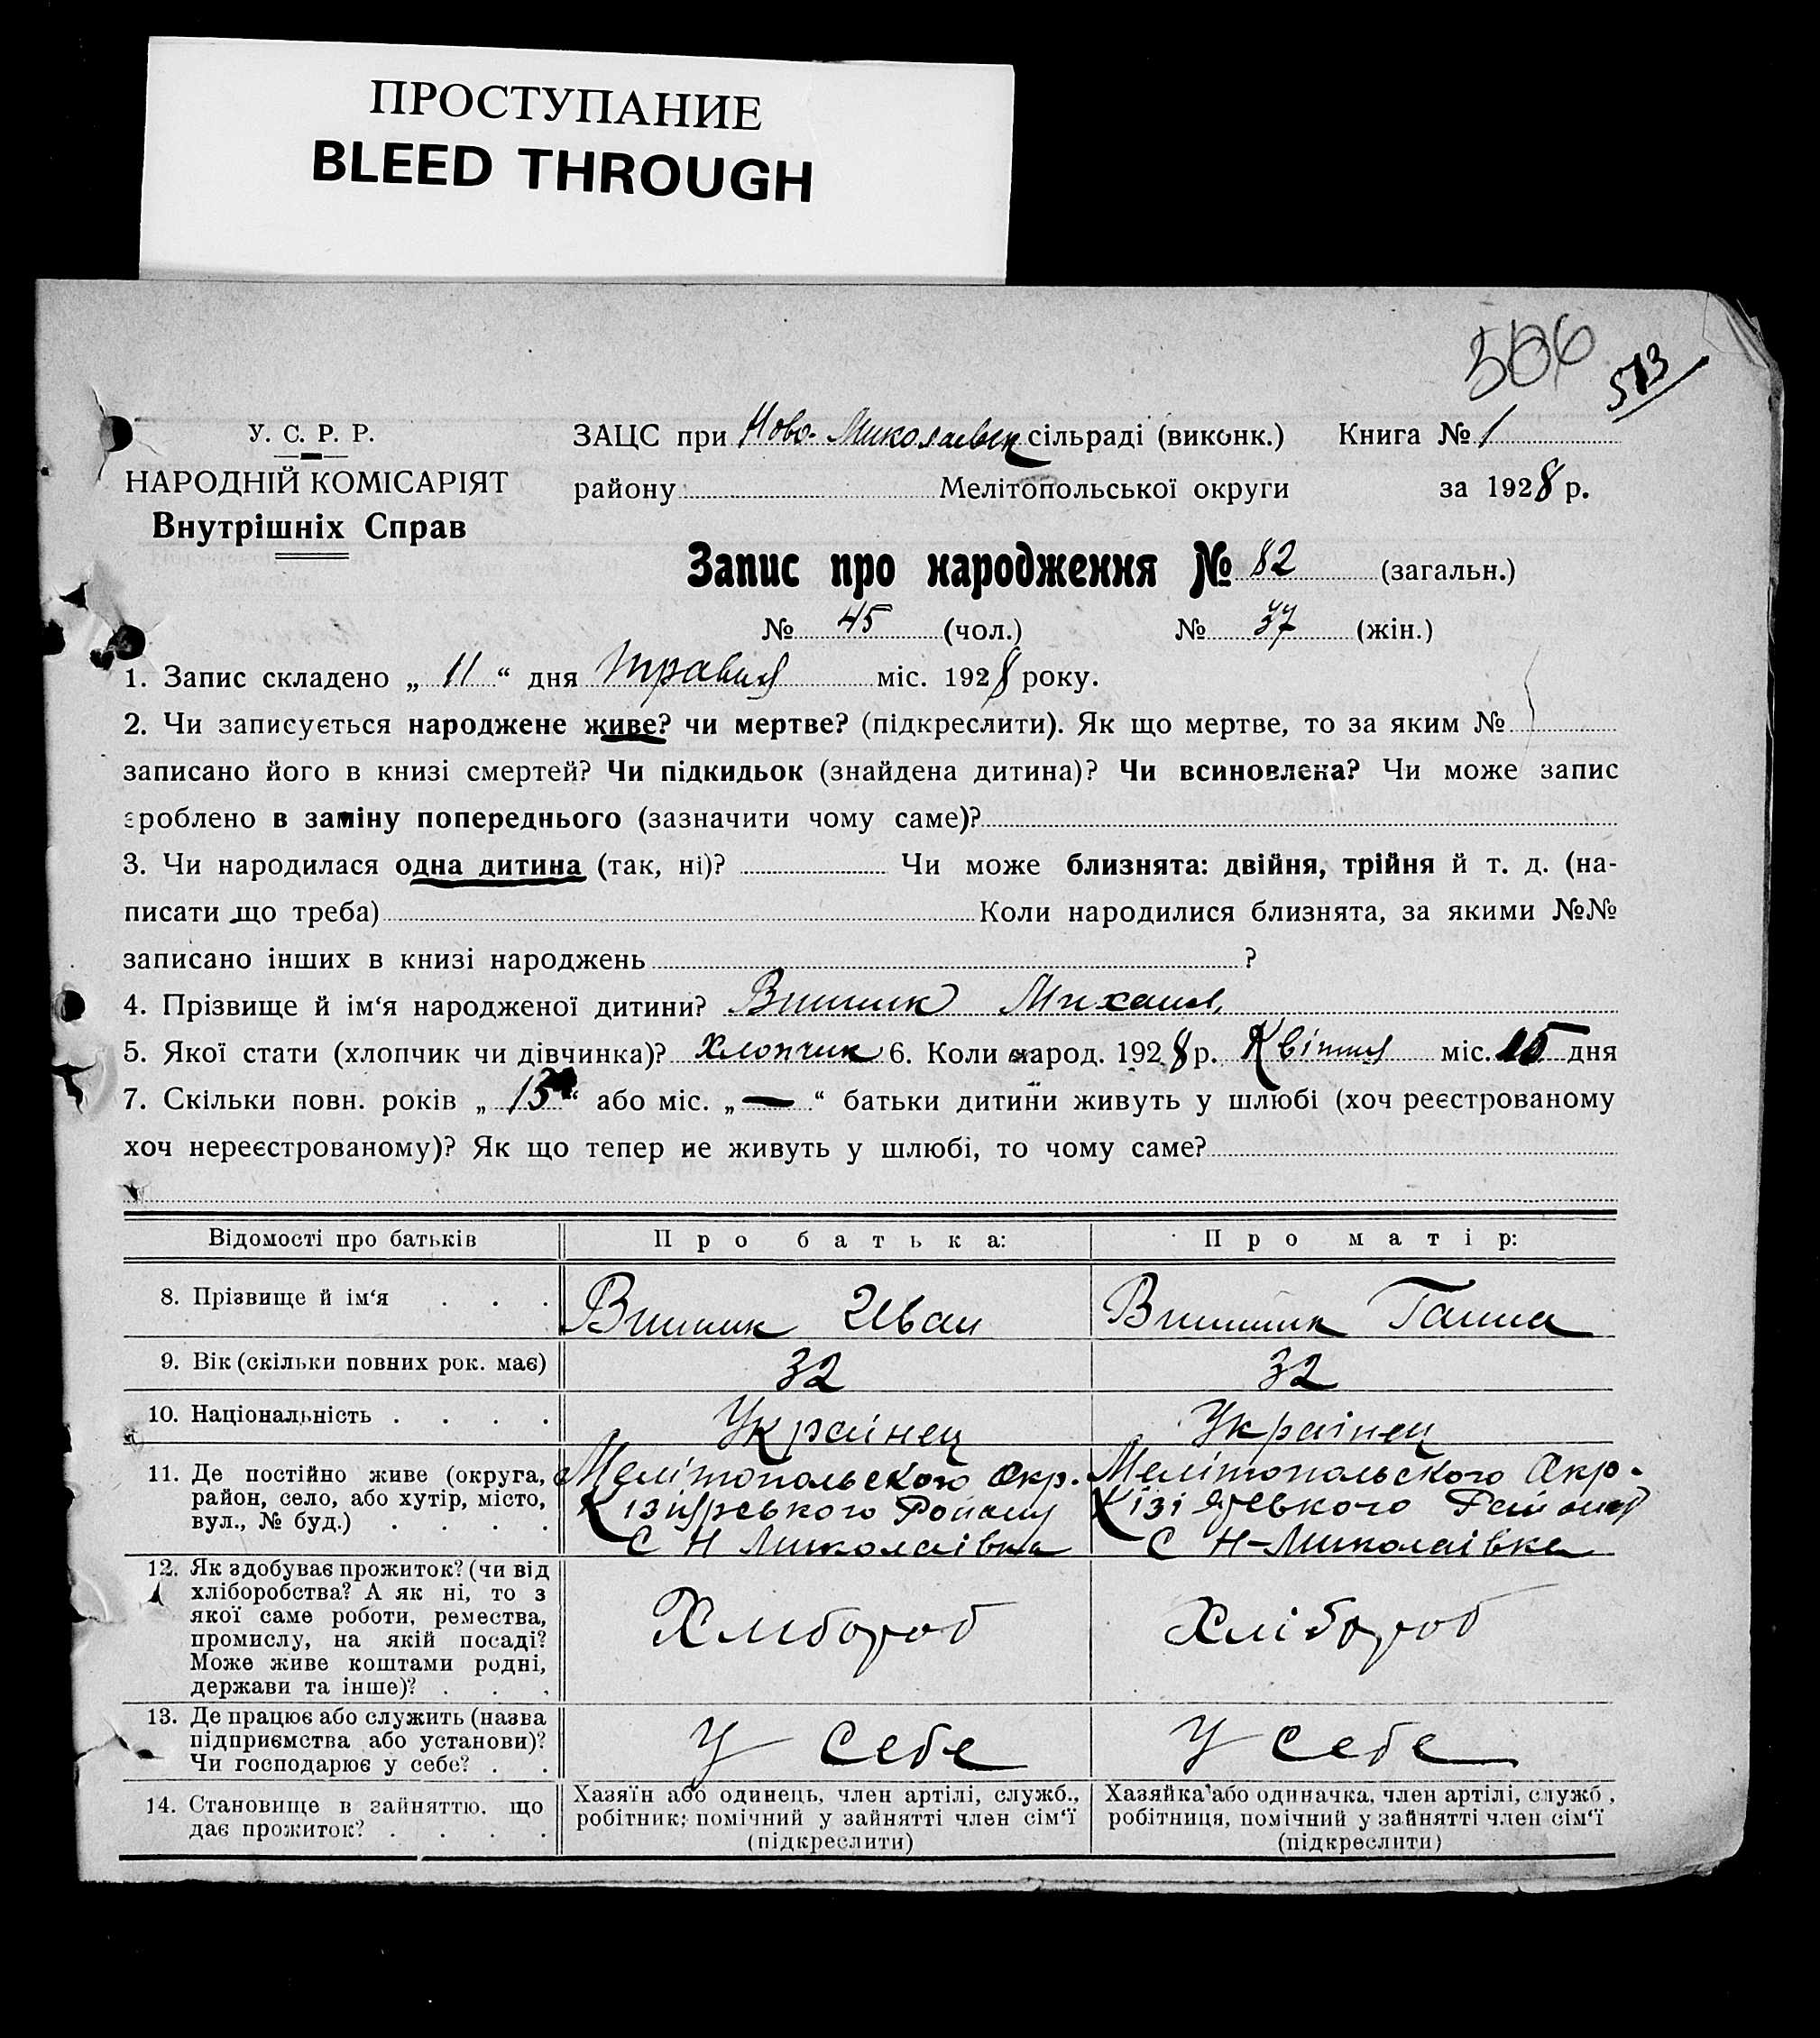 ПРОСТУПАНИЕ
BLEED THROUGH
506
573
У. С. Р. Р.
НАРОДНІЙ КОМІСАРІЯТ
Внутрішніх Справ
ЗАЦС при Ново-Миколаївск сільраді (виконк.) Книга № 1
району Мелітопольської округи за 1928 р.
Запис про народження № 82 (загальн.)
№ 45 (чол.) № 37 (жін.)
1. Запис складено „ 11 “ дня Травня міс. 1928 року.
2. Чи записується народжене живе? чи мертве? (підкреслити). Як що мертве, то за яким №
записано його в книзі смертей? Чи підкидьок (знайдена дитина)? Чи всиновлена? Чи може запис
зроблено в заміну попереднього (зазначити чому саме)?
3. Чи народилася одна дитина (так, ні)? Чи може близнята: двійня, трійня й т. д. (на-
писати що треба) Коли народилися близнята, за якими №№
записано інших в книзі народжень ?
4. Прізвище й ім‘я народженої дитини? Михаил
5. Якої стати (хлопчик чи дівчинка)? Хлопчик 6. Коли народ. 1928 р. Квітня міс. 15 дня
7. Скільки повн. років „ 13 “ або міс. „ — “ батьки дитини живуть у шлюбі (хоч реєстрованому
хоч нереєстрованому)? Як що тепер не живуть у шлюбі, то чому саме?
Відомості про батьків Про батька: Про матір:
8. Прізвище й ім‘я . . . Иван Ганна
9. Вік (скільки повних рок. має) 32 32
10. Національність . . . . Українец Українец
11. Де постійно живе (округа, район, село, або хутір, місто, вул., № буд.) . . . .
Мелітопольского Окр.
Району
С Н Миколаівка
Мелітопольского Окр.
Району
С Н-Миколаівка
12. Як здобуває прожиток? (чи від
хліборобства? А як ні, то з
якої саме роботи, ремества,
промислу, на якій посаді?
Може живе коштами родні,
держави та інше)? . . .
Хлибороб Хлібороб
13. Де працює або служить (назва
підприємства або установи)?
Чи господарює у себе? . .
У себе У себе
14. Становище в зайняттю, що
дає прожиток? . . . .
Хазяїн або одинець, член артілі, служб.,
робітник; помічний у зайнятті член сім‘ї
(підкреслити)
Хазяйка або одиначка, член артілі, служб.,
робітниця, помічний у зайнятті член сім‘ї
(підкреслити)